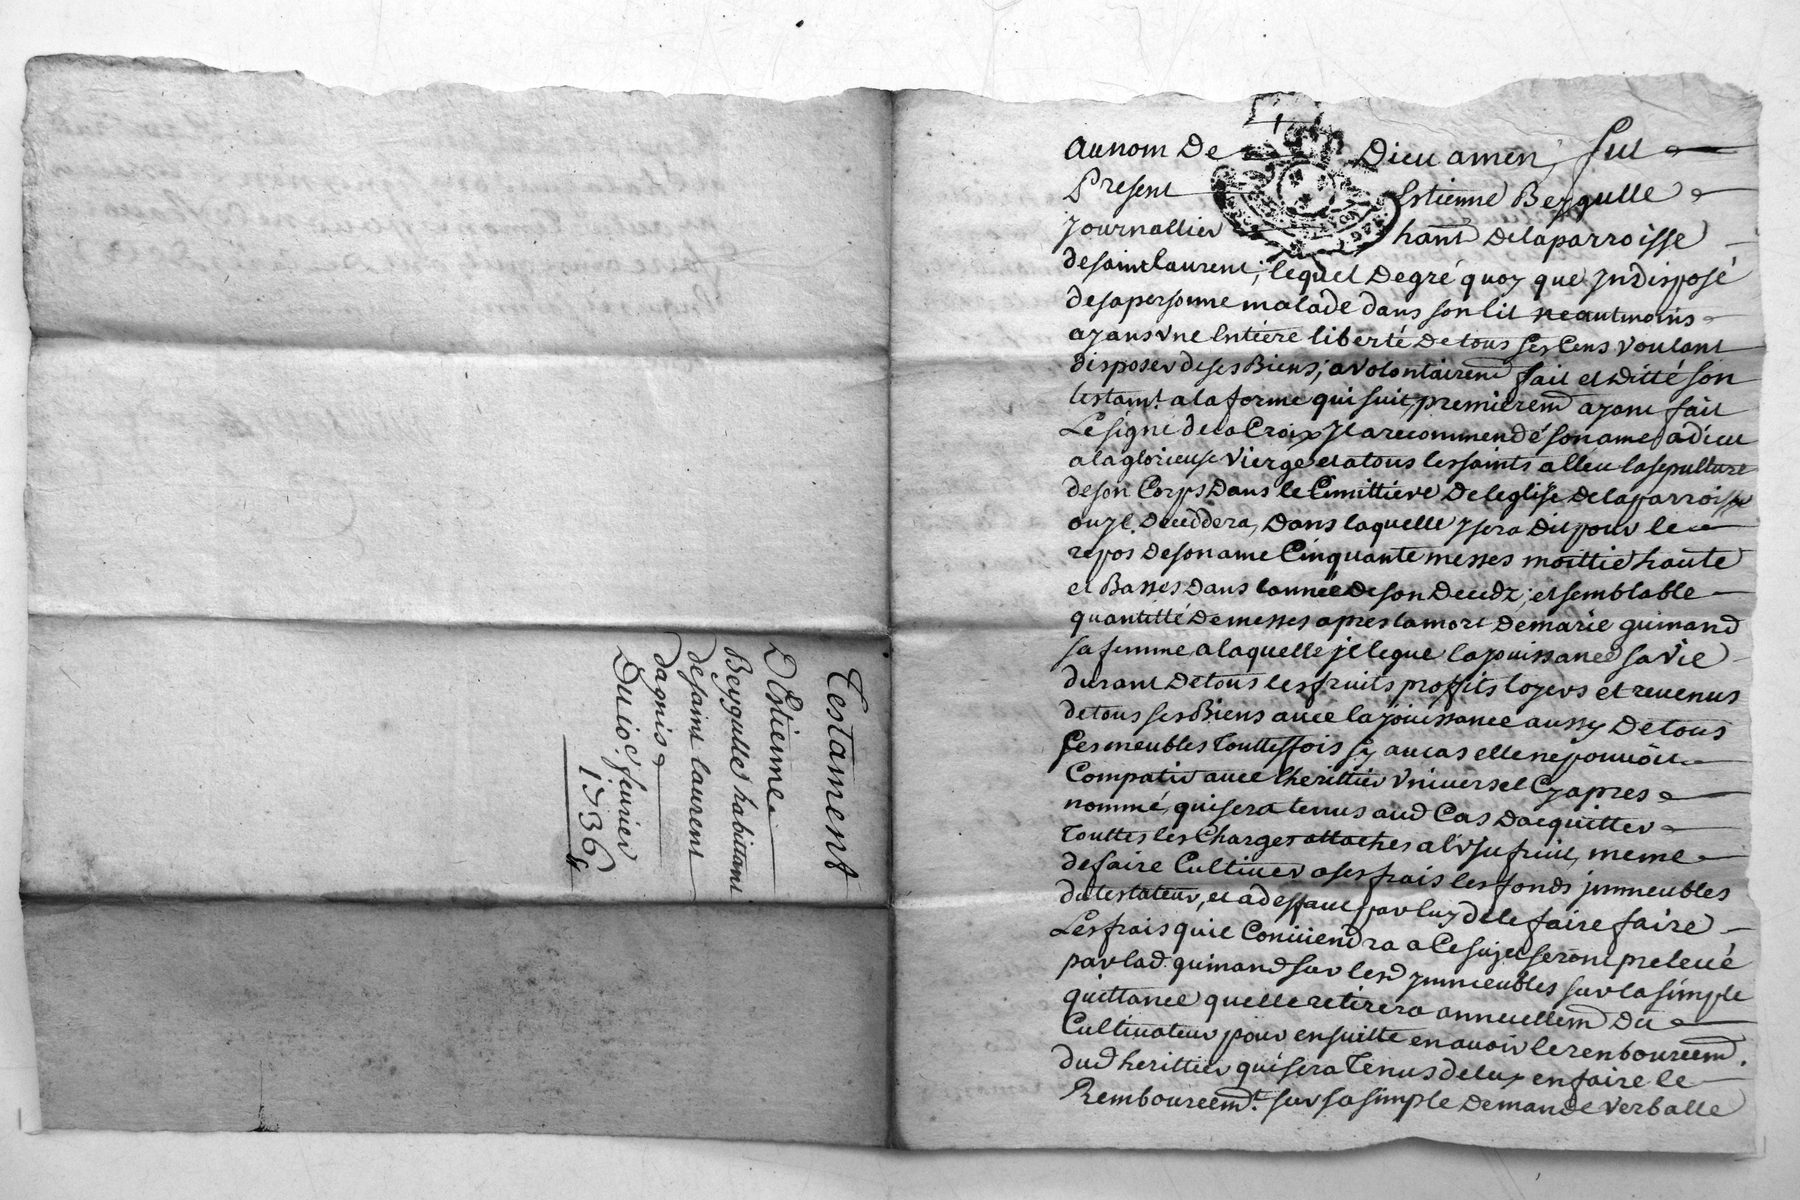 Testament
D'Estienne
Beygulle habittant
de saint laurent
dagnis
Du 10e feuvier
1736
au nom De Dieu amen, fut
Present Estienne Beygulle
Journallier hant de la parroisse
de saint laurent; lequel De gré quoy que Jndisposé
de sa personne malade dans son lit neautmoins
ayans vne Entiére liberté De tous ses Cens voulant
Disposer de ses Biens; a volontairemt fait et Ditté son
testamt. a la forme qui suit, premieremt ayant fait
Le signe de la Croix Jl a recommendé son ame a dieu
a la glorieuse vierge et a tous les saints alleu la sepulture
de son Corps Dans le Cimittiere De leglise De la parroisse
ou Jl Deceddera, Dans laquelle Jl sera Dit pour le
repos De son ame Cinquante messes moittie haute
et Basses Dans lannée De son Decedz; et semblable
quantitté De messes apres la mort De marie guimand
sa femme, a laquelle jl legue la jouissance sa vie
durant De tous les fruits proffits loyers et reuenus
de tous ses Biens auec la jouissance aussy De tous
ses meubles touttesfois sy au cas elle ne pouuoit
Compatir auec lherittier vniuersel Cy apres
nommé, qui sera tenus aud Cas Dacquitter
touttes les Charges attachés a lvsufruit, meme
de faire Cultiuer a ses frais les fonds jmmeubles
du testateur, et a deffaut par luy de le faire faire
Les frais quil Conuiendra a Ce sujet seront preleué
par lad. guimand sur lesd Jmmeubles sur la simple
quittance quelle retirera annuellemt Du
Cultiuateur pour ensuitte en auoir le renbourcemt.
dud herittier qui sera Tenus de luy en faire le
Rembourcemt. sur sa simple Demande verballe